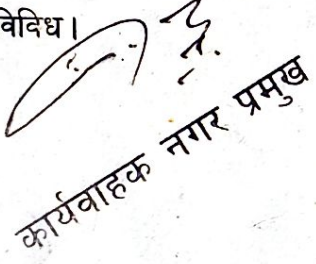 विविध।
कार्यवाहक नगर प्रमुख